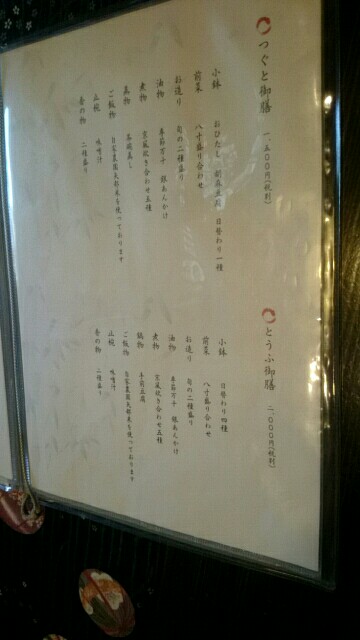 つぐと御膳 一、五〇〇円(税別)
小鉢 おひたし 胡麻豆腐 日替わり一種
前菜 八寸盛り合わせ
お造り 旬の二種盛り
油物 季節万十 銀あんかけ
煮物 京風炊き合わせ五種
蒸物 茶碗蒸し
ご飯物 自家農園矢部米を使っております
止椀 味噌汁
香の物 二種盛り
とうふ御膳 二、〇〇〇円(税別)
小鉢 日替わり四種
前菜 八寸盛り合わせ
お造り 旬の二種盛り
油物 季節万十 銀あんかけ
煮物 京風炊き合わせ五種
鍋物 手前豆腐
ご飯物 自家農園矢部米を使っております
止椀 味噌汁
香の物 二種盛り